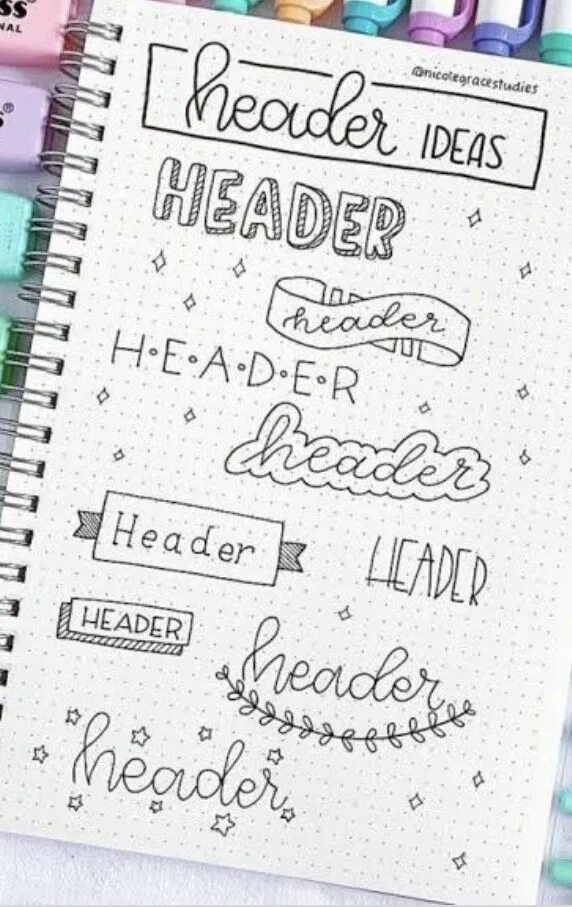 SS
NAL
S®
@nicolegracestudies
header IDEAS
HEADER
header
H•E•A•D•E•R
header
Header
HEADER
HEADER
header
header